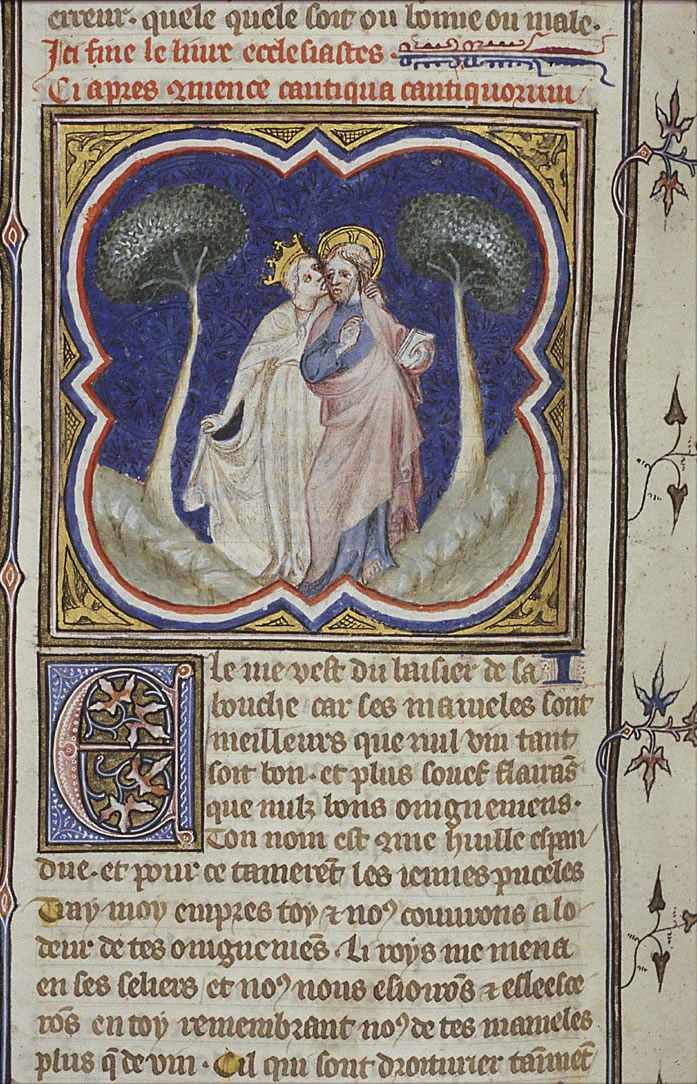 erreur. quele quele soit ou bonne ou male.
Ici fine le livre ecclesiastes.
Ci apres 9mence cantiqua cantiquorum
Ele me vest du baisier de sa
bouche car ses mameles sont
meilleurs que nul vin tant
soit bon. et plus souef flairãs
que nulz bons oingnemens.
Ton nom est 9me huille espan
due. et pour ce tameret̃ les iennes puceles
Tray moy empres toy ⁊ noꝰ courrons a lo
deur de tes oingnemẽs. Li roys me mena
en ses seliers et noꝰ nous esiorrõs ⁊ esleesce
rõs en toy remembrant noꝰ de tes mameles
plus q̃ de vin. Cil qui sont droiturier taimẽt